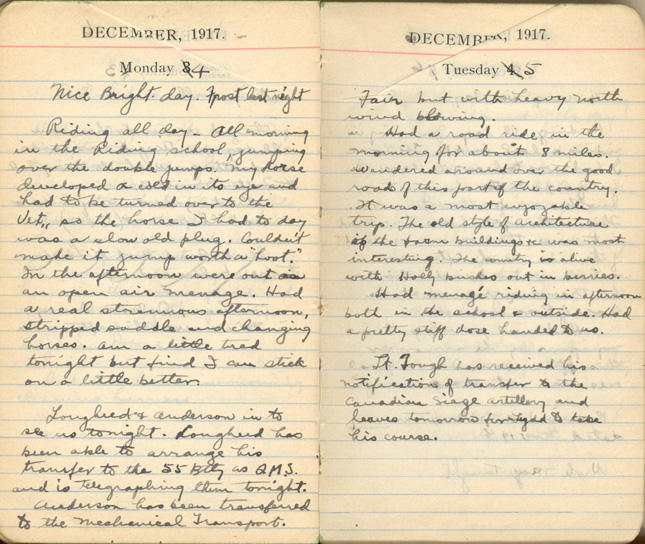 DECEMBER, 1917.
Monday 34
Nice Bright day. Frost last night
Riding all day - All morning
in the Riding school, jumping
over the double jumps. My horse
developed a cold in its eye and
had to be turned over to the
Vet,, so the horse I had to day
was a slow old plug. Couldn't
made it jump worth a "hoot."
In the afternoon were out in
an open air menage. Had
a real strenuous afternoon,
stripped saddle and changing
horses. Am a little tired
tonight but find I can stick
on a little better.
Lougheed & Anderson in to
see us tonight. Lougheed has
been able to arrange his
transfer to the 55 Bty as Q.M.S.
and is telegraphing them tonight.
Anderson has been transferred
to the Mechanical Transport.
DECEMBER, 1917.
Tuesday 4 5
Fair but with heavy north
wind blowing.
Had a road ride in the
morning for about 8 miles.
Wandered around over the good
roads of this part of the country.
It was a most enjoyable
trip. The old style of architecture
of the farm buildings &c was most
interesting. The country is alive
with Holly bushes out in berries.
Had menagé riding in afternoon
both in the school & outside. Had
a pretty stiff dose handed to us.
Lt. Tough has received his
notification of transfer to the
Canadian Siege artillery and
leaves tomorrow to take
his course.